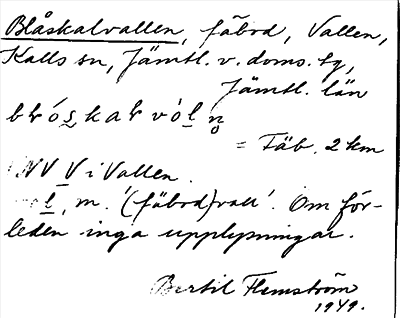 Blåskalvallen, fäbod, Vallen,
Kalls sn, Jämtl. v. doms. tg,
Jämtl. län
= Fäb. 2 km
NV V i Vallen.
l, m. '(fäbod)vall'. Om för-
leden inga upplysningar.
Bertil Flemström
1949.